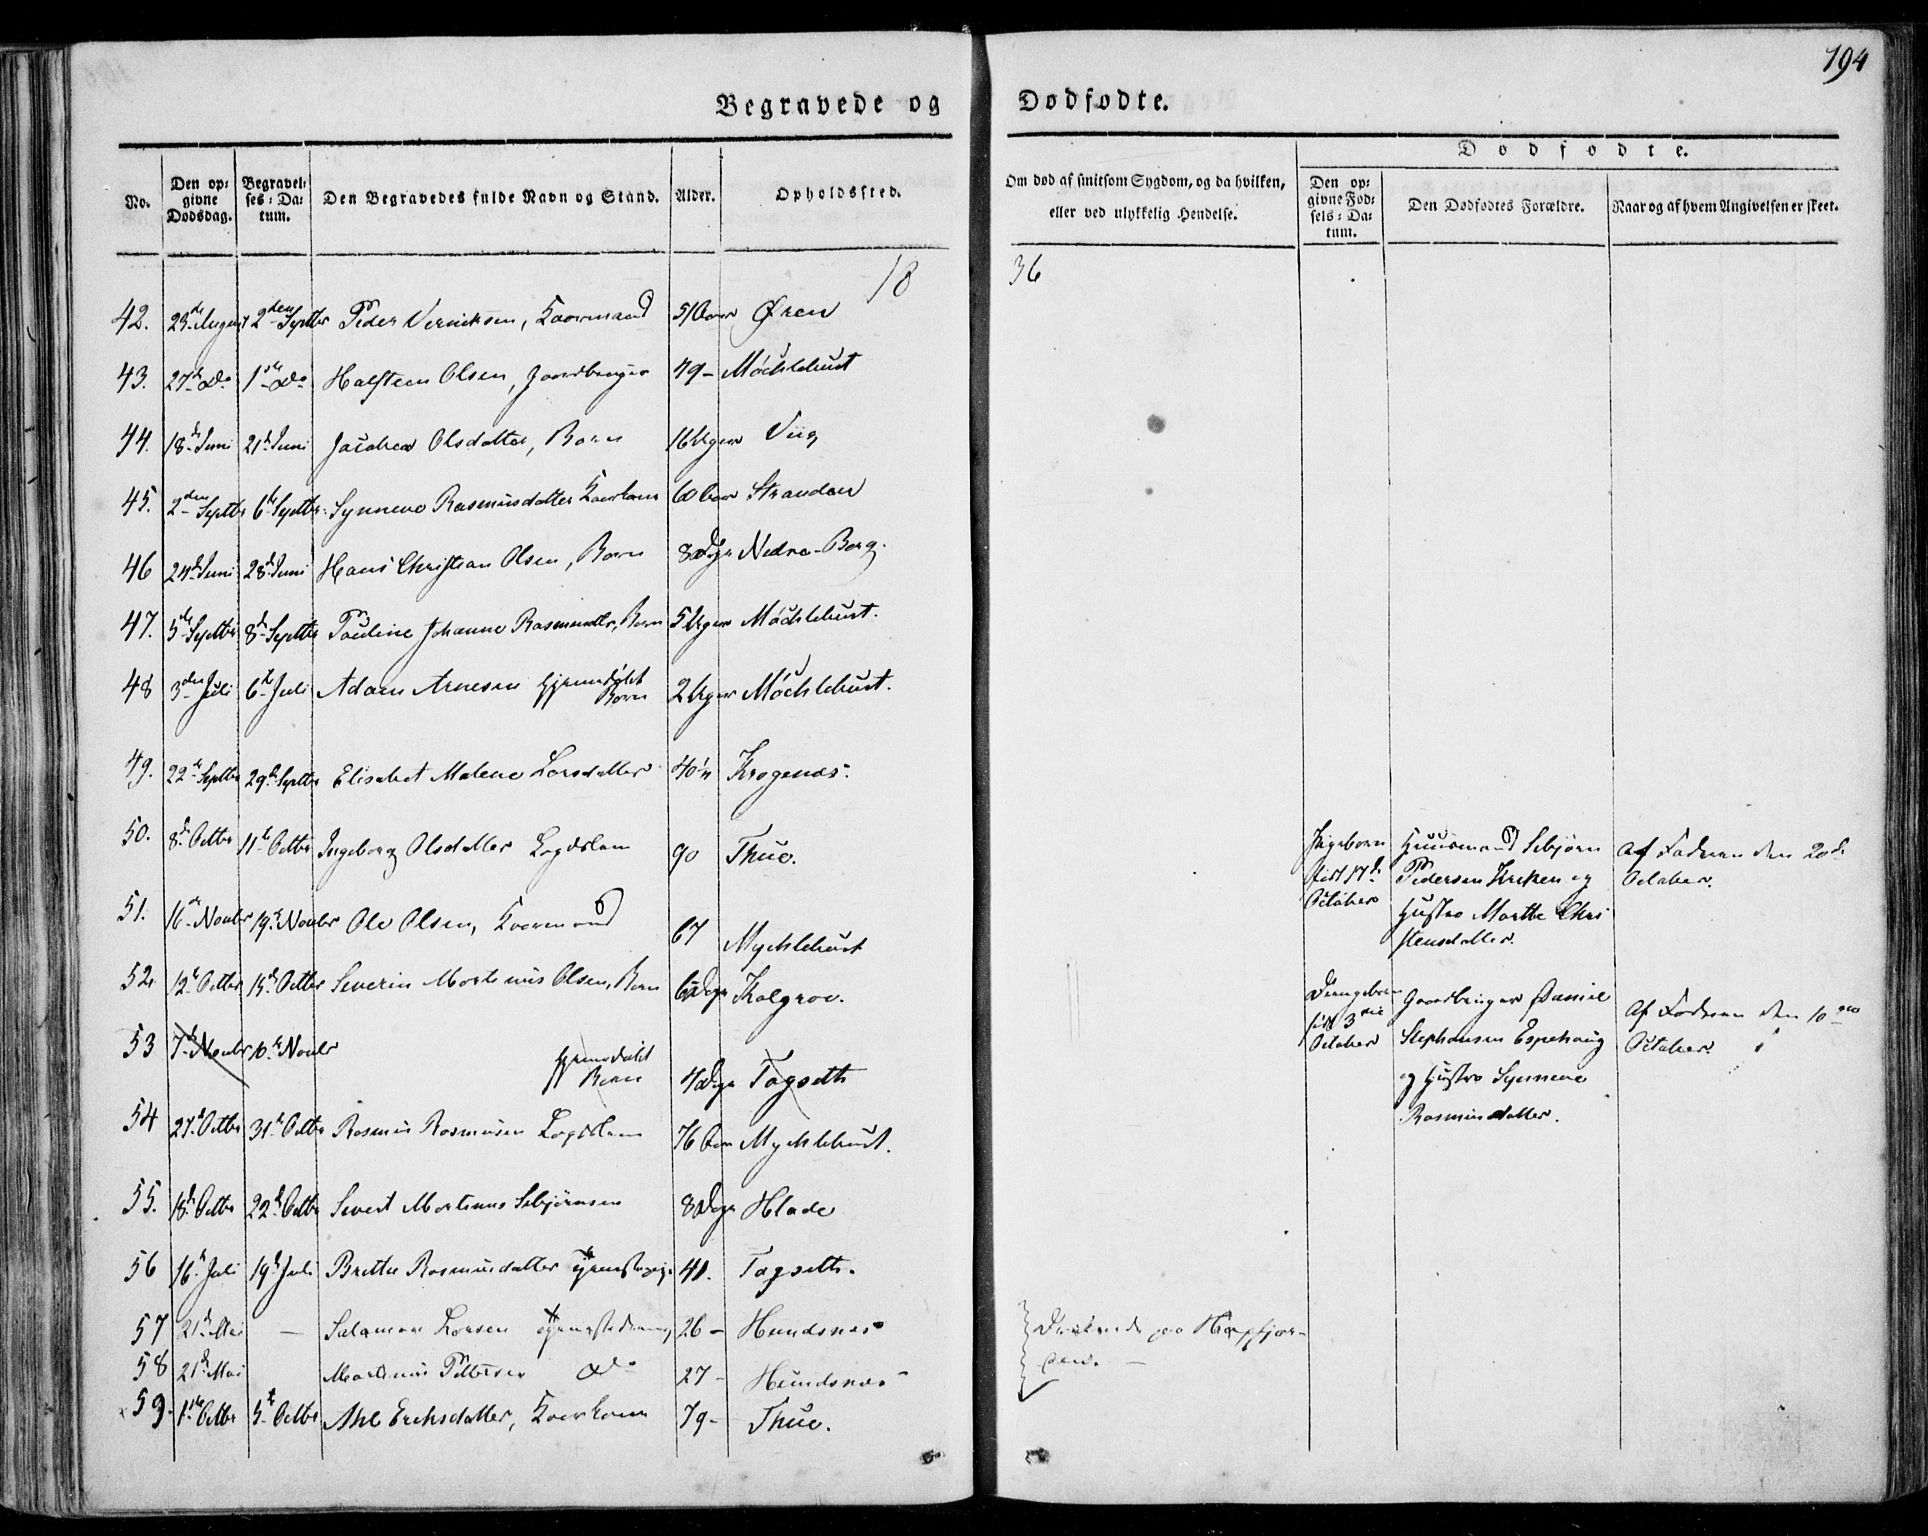 194
Begravede og Dødfødte.
No.
Den opgivne Dødsdag.
Begravelses-Datum.
Den Begravedes fulde Navn og Stand.
Alder.
Opholdssted.
Om død af smitsom Sygdom, og da hvilken, eller ved ulykkelig Hendelse.
Dødfødte.
Den opgivne Fødsels-Datum.
Den Dødfødtes Forældre.
Naar og af hvem Angivelsen er skeet.
1836
42. 23de August 2den Septbr Peder Olsen
43. 27de do 1ste do Halsteen Olsen, Gaardbruger 49 - Møchlebust
44. 18de Juni 21de Juni Jacobea Olsdatter, Barn 16 Uger Viig
45. 2den Septbr 6te Septbr Synneve Rasmusdatter 60 Aar Stranden
46 24de Juni 28de Juni Hans Christian Olsen, Barn 8 Dage Nedre-Berg.
47. 5te Septbr 8de Septbr Pauline Johanne Rasmusdtr, Barn 5 Uger Møchlebust.
48 3den Juli 6te Juli Adam Arnesen Hjemdøbt Barn 2 Uger Møchlebust.
49. 22de Septbr 29de Septbr Elisabet Malene Larsdatter 40 Krogenæs.
50. 8de Octbr 11te Octbr Ingeborg Olsdatter Lægdslem 90 Thue.
51. 16de Novbr 19de Novbr Ole Olsen, Kaarmand 67 Mychlebust
52. 12te Octbr 15de Octbr Severin Martinus Olsen, Barn 6 Dage Kalgrov.
53 7de Novbr 10de Novbr Hjemdøbt Barn 4 Dage Tagseth
54 27de Octbr 31te Octbr Rasmus Rasmusen Lægdslem 76 Aar Mychlebust.
55. 18de Octbr 22de Octbr Sivert Martinus Sebjørnsen 8 Dage Hlade
56 16de Juli 19de Juli Brithe Rasmusdatter 41. Tagseth.
57 21de Mai - Salamon Larsen 26 - Hundsnes
58 21de Mai Martinus Pettersen do 27 - Hundsnæs
59. 1ste Octbr 5te Octbr Ahl. Erichsdatter, Kaarkone 79 - Thue.
Druknede paa
Pigebarn født 17de October
Huusmand Sebjørn Pedersen Kreken og Hustro Marthe Christensdatter.
Af Faderen den 20de October.
Drengebarn født 3die October
Gaardbruger Daniel Stephansen Espehaug og Hustro Synneve Rasmusdatter.
Af Faderen den 10de October.